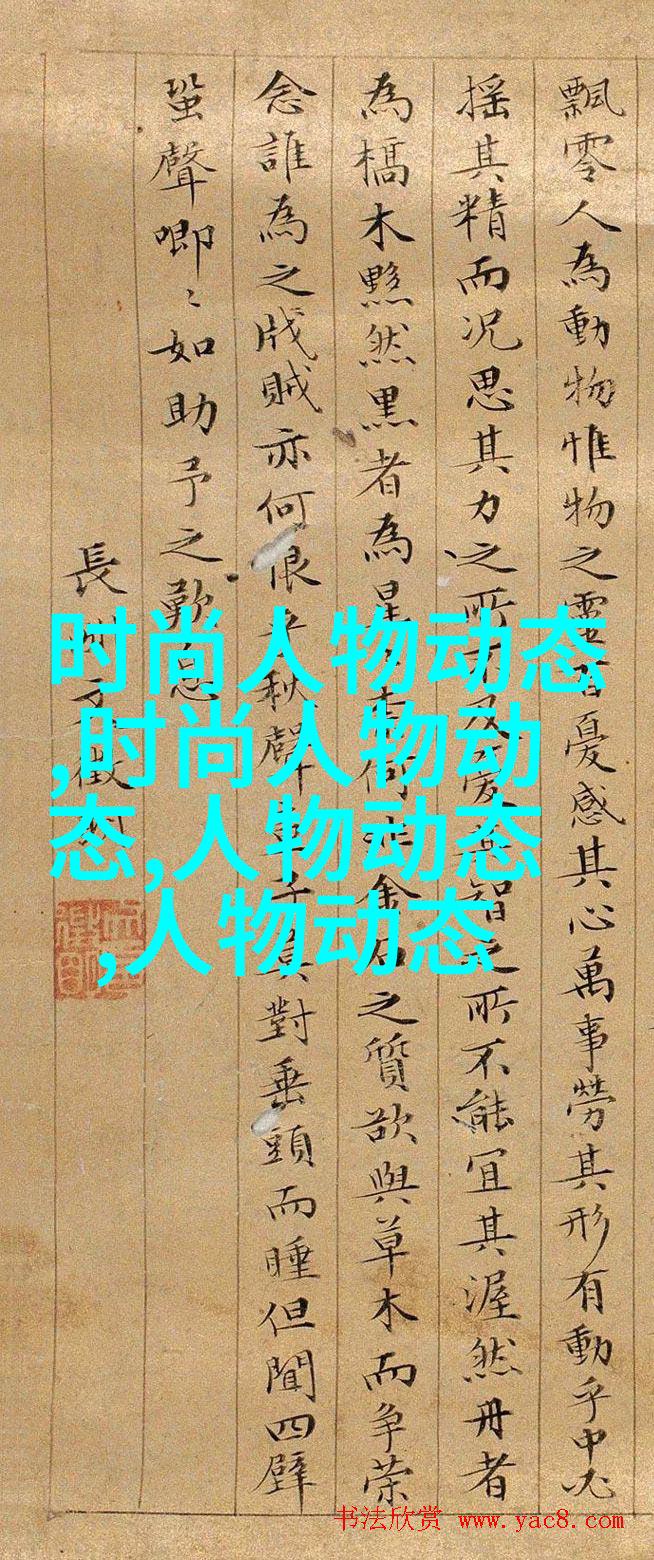 飄零人為動物惟物之靈百憂感其心萬事勞其形有動乎中必
搖其精而況思其力之所不及憂其智之所不能宜其渥然丹者
為槁木黟然黑者為星星奈何非金石之質欲與草木而争荣
念誰為之戕賊亦何恨乎秋聲童子莫對垂頭而睡但聞四壁
蛩聲唧〻如助予之歎息
長洲文徵明
时尚人物动态
,时尚人物动
态,人物动态
,人物动态
书法欣赏 www.yac8.com